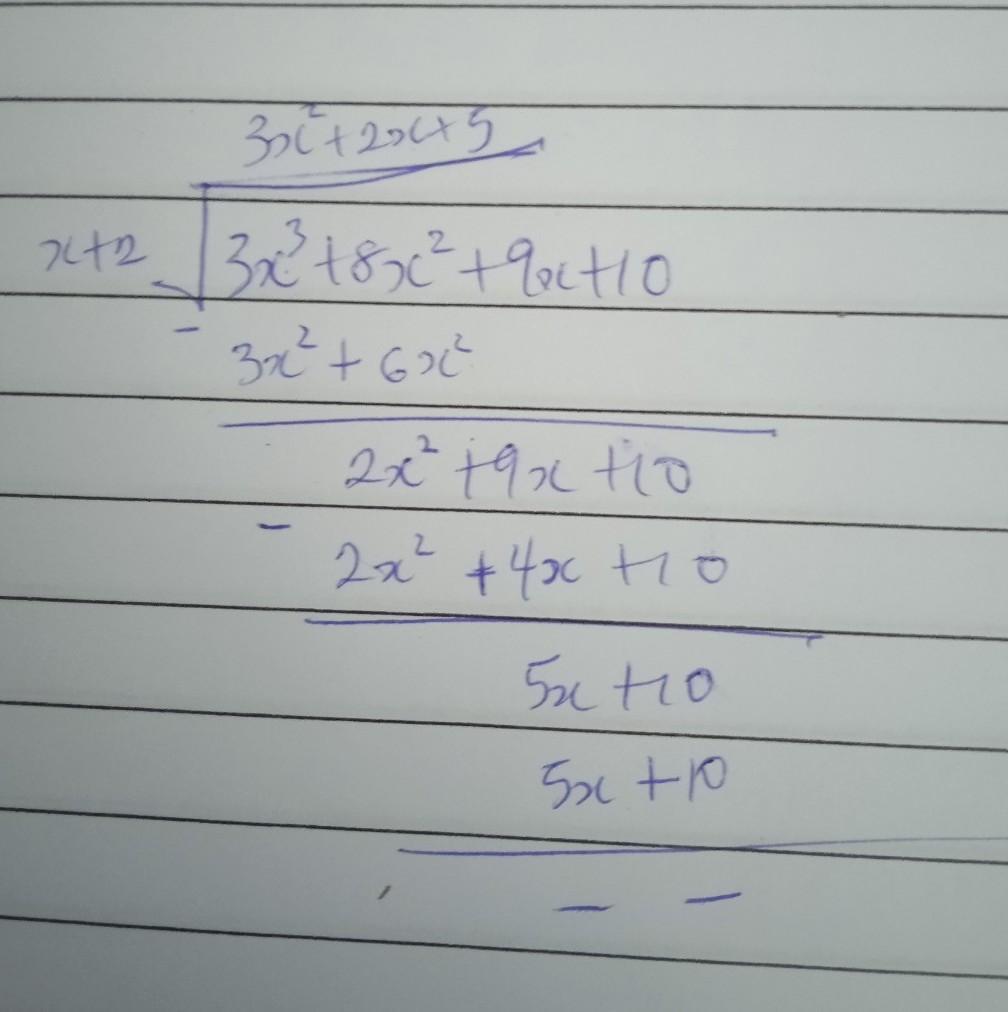 3x²+2x+5
x+2 √3x³+8x²+9x+10
- 3x²+6x²
2x²+9x+10
- 2x²+4x+10
5x+10
5x+10
- -